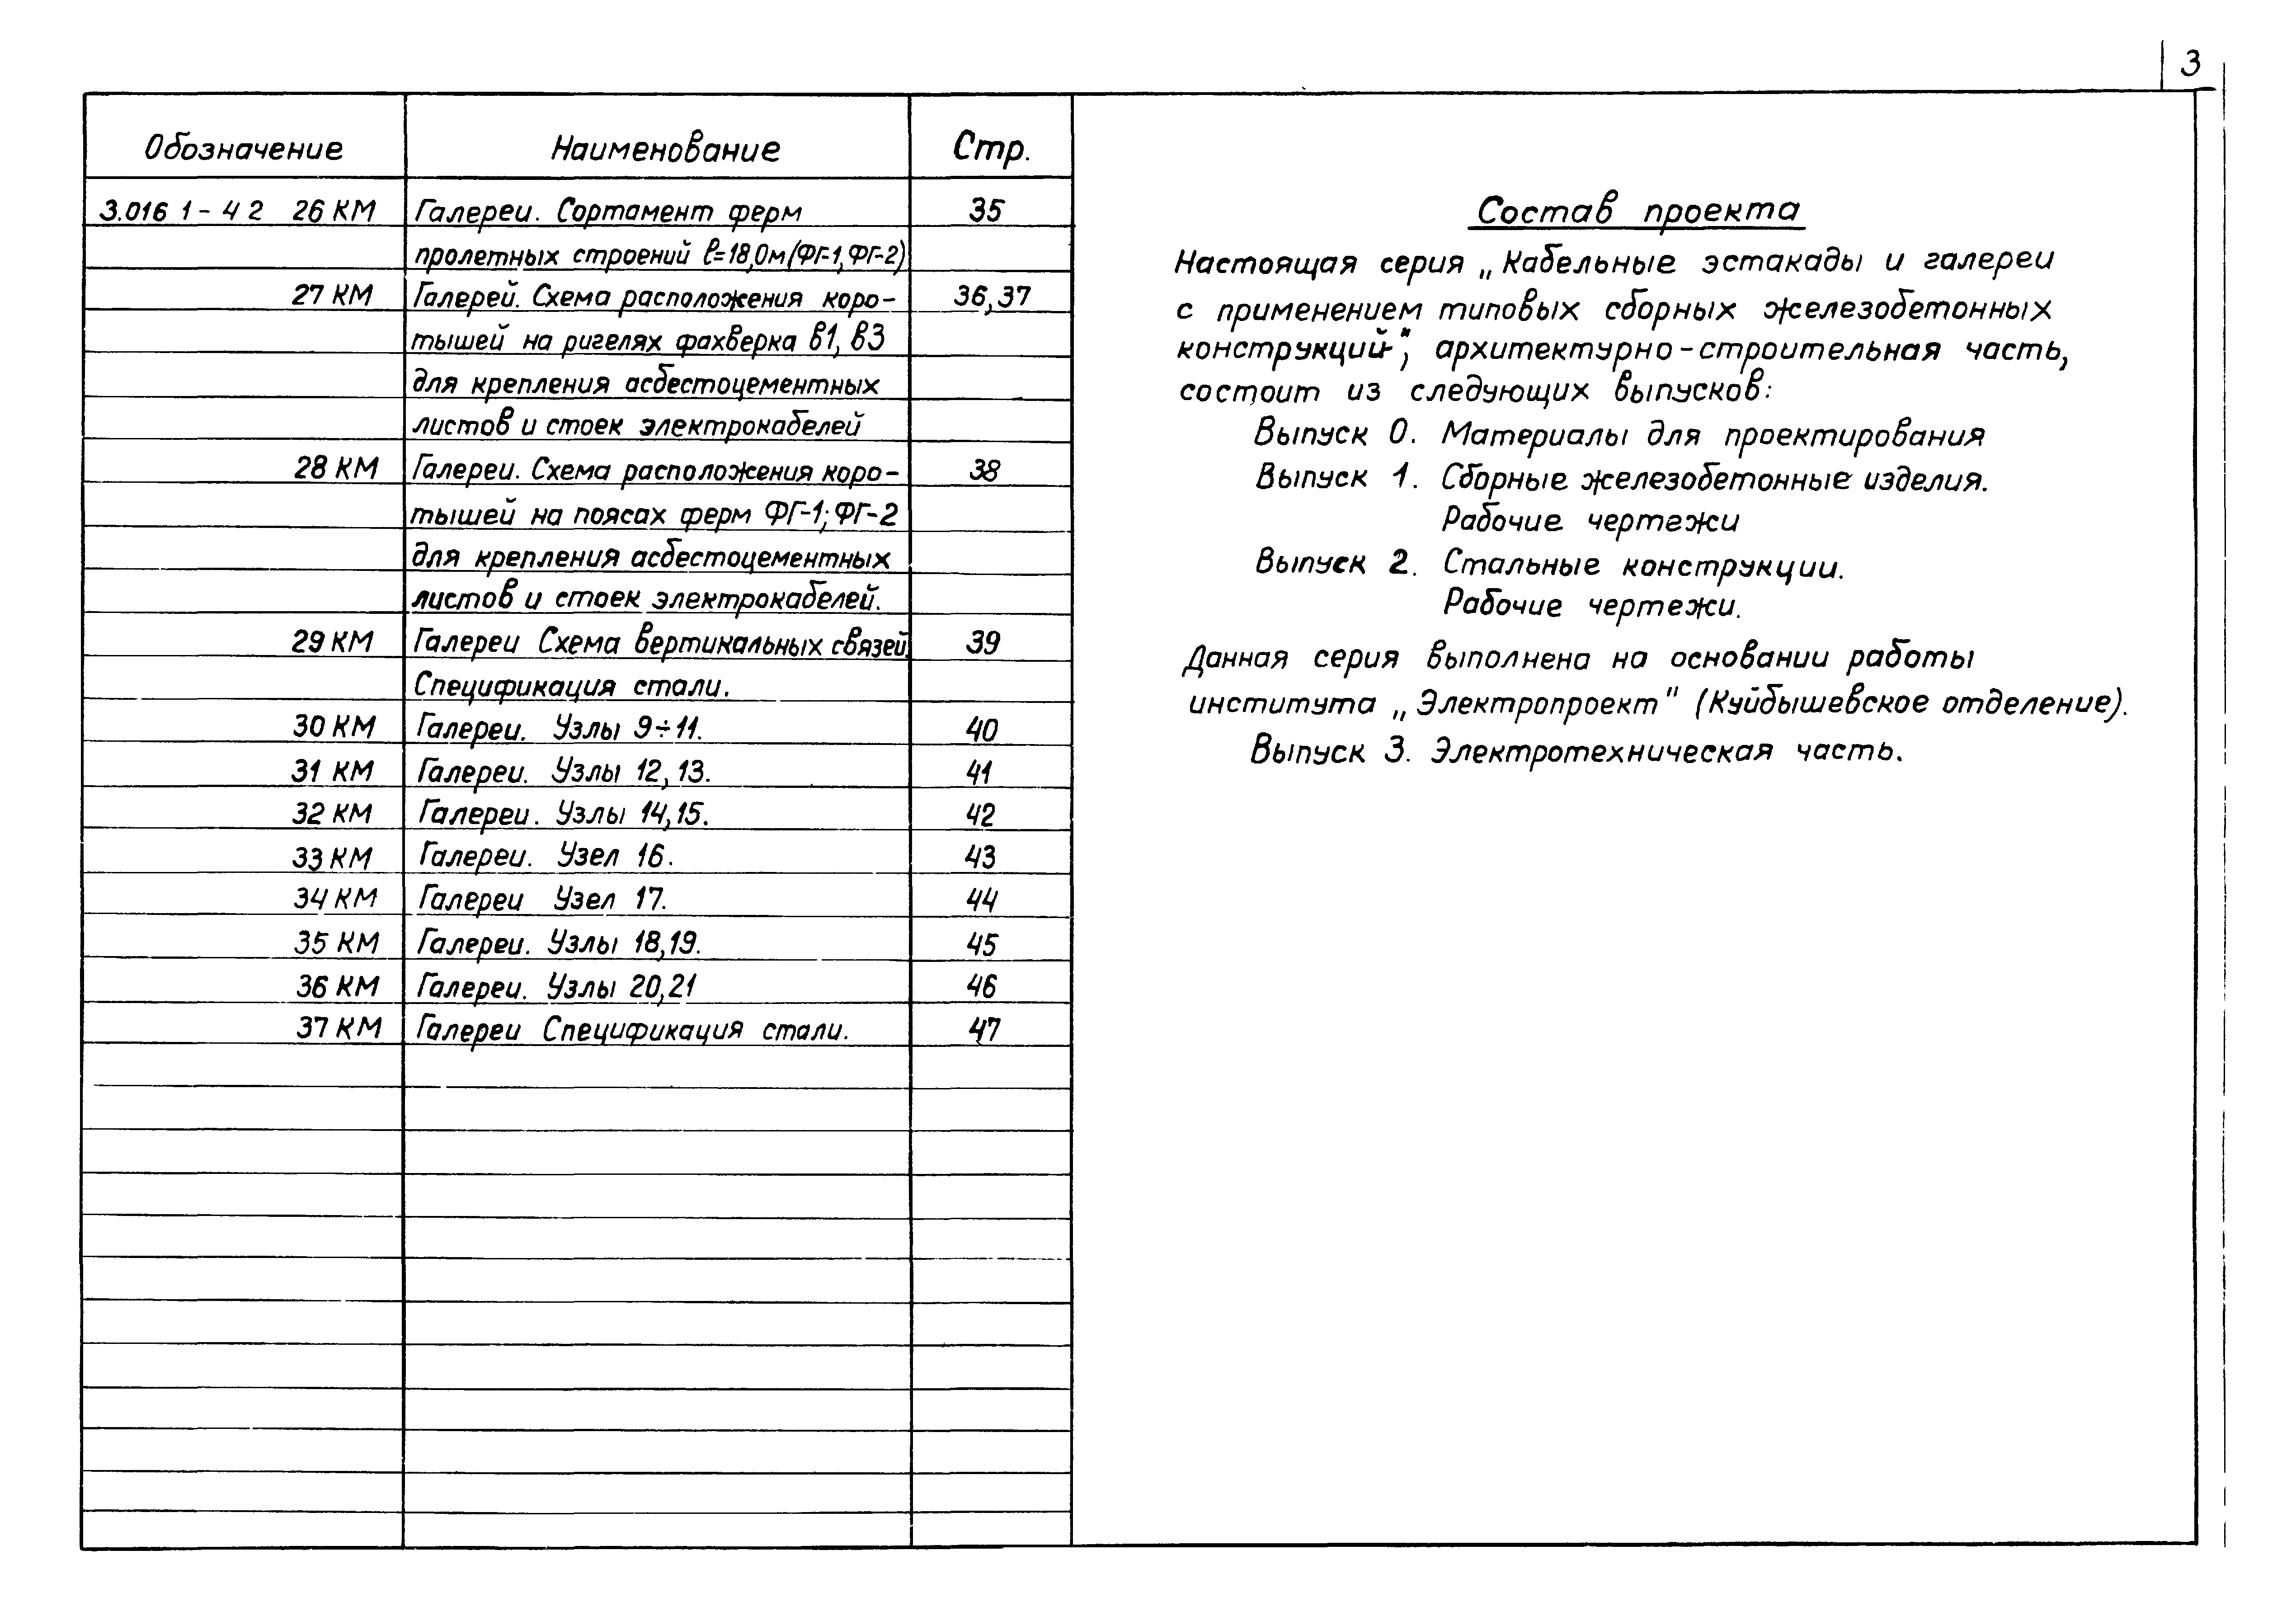 3
Обозначение Наименование Стр.
3.016 1-4 2 26 КМ Галереи. Сортамент ферм 35
пролетных строений ℓ=18,0м(ФГ-1, ФГ-2)
27 КМ Галерей. Схема расположения коро- 36,37
тышей на ригелях фахверка в1, в3
для крепления асбестоцементных
листов и стоек электрокабелей
28 КМ Галереи. Схема расположения коро- 38
тышей на поясах ферм ФГ-1; ФГ-2
для крепления асбестоцементных
листов и стоек электрокабелей.
29 КМ Галереи Схема вертикальных связей. 39
Спецификация стали.
30 КМ Галереи. Узлы 9÷11. 40
31 КМ Галереи. Узлы 12, 13. 41
32 КМ Галереи. Узлы 14,15. 42
33 КМ Галереи. Узел 16. 43
34 КМ Галереи Узел 17. 44
35 КМ Галереи. Узлы 18,19. 45
36 КМ Галереи. Узлы 20,21 46
37 КМ Галереи Спецификация стали. 47
Состав проекта
Настоящая серия „Кабельные эстакады и галереи
с применением типовых сборных железобетонных
конструкций", архитектурно-строительная часть,
состоит из следующих выпусков:
Выпуск 0. Материалы для проектирования
Выпуск 1. Сборные железобетонные изделия.
Рабочие чертежи
Выпуск 2. Стальные конструкции.
Рабочие чертежи.
Данная серия выполнена на основании работы
института „Электропроект" (Куйбышевское отделение).
Выпуск 3. Электротехническая часть.